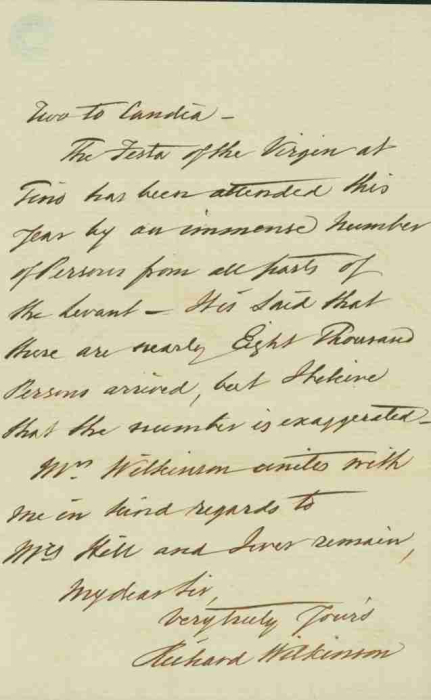 Two to Candia -
The Festa of the Virgin at
Tino has been attended this
Year by an immense Number
of Persons from all parts of
the Levant - It is Said that
there are nearly Eight Thousand
Persons arrived, but I believe
that the number is exaggerated -
Mrs Wilkinson unites with
me in kind regards to
Mrs Hill and I ever remain,
My dear Sir,
Very truly Yours
Richard Wilkinson